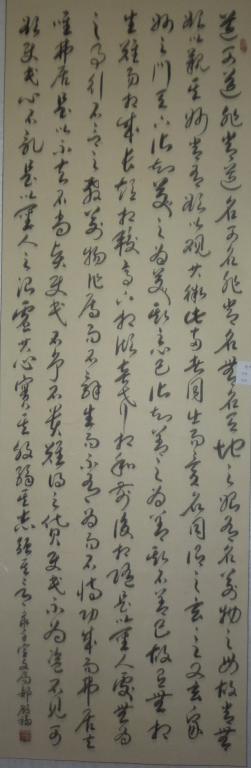 道可道非常道名可名非常名無名天地之始有名萬物之母故常無
欲以觀其妙常有欲以觀其徼此兩者同出而異名同謂之玄玄之又玄衆
妙之門天下皆知美之為美斯惡已皆知善之為善斯不善已故有無相
生難易相成長短相較高下相傾音聲相和前後相隨是以聖人處無為
之事行不言之教萬物作焉而不辭生而不有為而不恃功成而弗居夫
唯弗居是以不去不尚賢使民不爭不貴難得之貨使民不為盜不見可
欲使民心不亂是以聖人之治虛其心實其腹弱其志強其骨